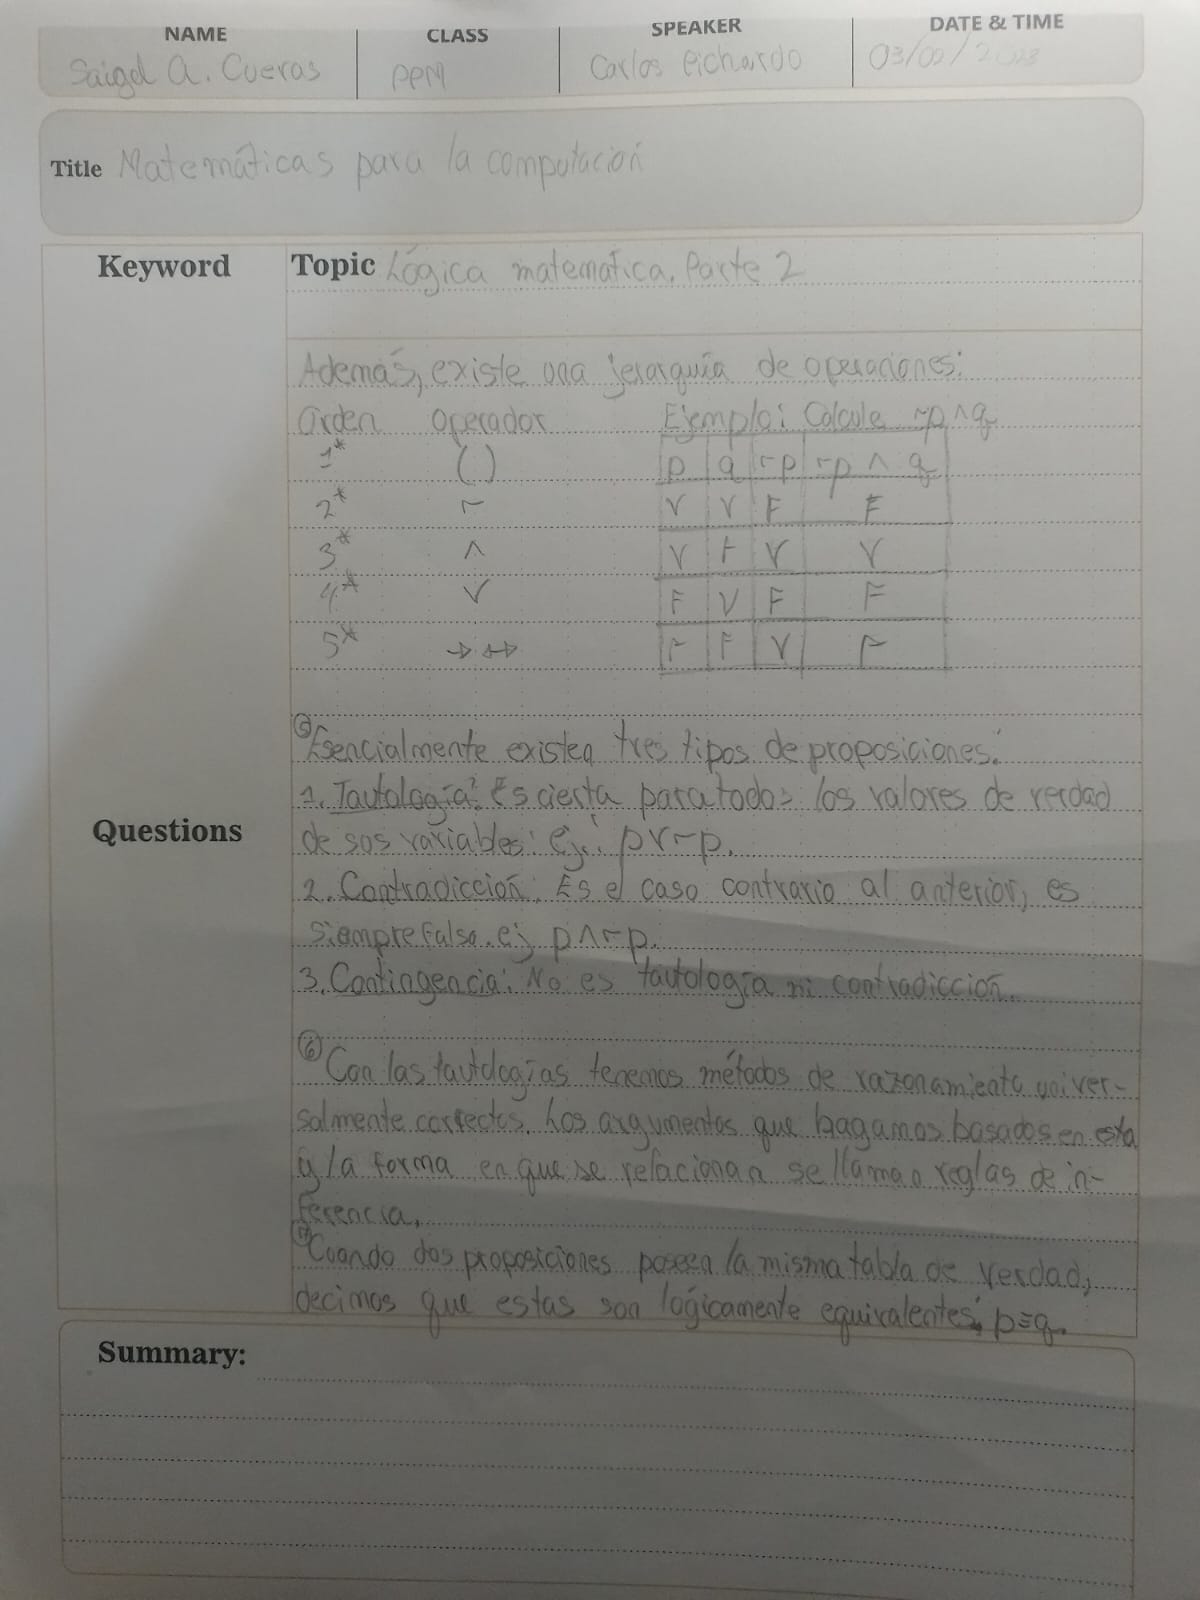 NAME CLASS SPEAKER DATE & TIME
Saigel A. Cuevas PPM Carlos Pichardo 03/02/2023
Title Matemáticas para la computación
Keyword Topic Lógica matemática. Parte 2
Además, existe una jerarquía de operaciones:
Orden Operador Ejemplo: Calcule ¬p∧q
1* ( ) p q ¬p ¬p ∧ q
2* ¬ V V F F
3* ∧ V F V V
4* ∨ F V F F
5* → ↔ F F V F
Esencialmente existen tres tipos de proposiciones:
1. Tautología: Es cierta para todos los valores de verdad
Questions de sus variables: Ej: p∨¬p.
2. Contradicción: Es el caso contrario al anterior, es
siempre falsa. ej p∧¬p.
3. Contingencia: No es tautología ni contradicción.
⑥ Con las tautologías tenemos métodos de razonamiento univer-
salmente correctos. Los argumentos que hagamos basados en esta
y la forma en que se relacionan se llaman reglas de in-
ferencia.
Cuando dos proposiciones poseen la misma tabla de verdad,
decimos que estas son lógicamente equivalentes, p≡q.
Summary: